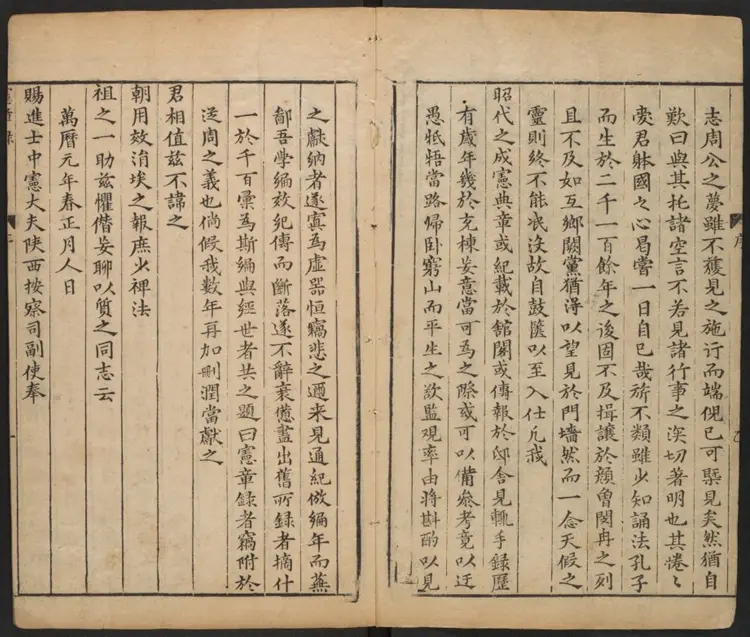 序
志周公之夢雖不獲見之施行而端倪已可槩見矣然猶自
歎曰與其托諸空言不若見諸行事之深切著明也其惓〻
愛君躰國之心曷嘗一日自已哉旂不類雖少知誦法孔子
而生於二千一百餘年之後固不及揖讓於顏曾閔冉之列
且不及如互鄉闕黨猶得以望見於門墻然而一念天假之
靈則終不能泯沒故自鼓篋以至入仕凢我
昭代之成憲典章或紀載於舘閣或傳報於邸舍見輒手録歷
有歲年幾於充棟妄意當可為之際或可以備參考竟以迂
愚牴牾當路歸卧窮山而平生之欲監觀率由將斟酌以見
之獻納者遂寘為虛器恒竊悲之邇来見通紀倣編年而蕪
鄙吾學編效紀傳而斷落遂不辭衰憊盡出舊所録者摘什
一於千百彙為斯編與經世者共之題曰憲章録者竊附於
從周之義也倘假我數年再加刪潤當獻之
君相值兹不諱之
朝用效涓埃之報庶少裨法
祖之一助兹懼僭妄聊以質之同志云
萬曆元年春正月人日
賜進士中憲大夫陝西按察司副使奉